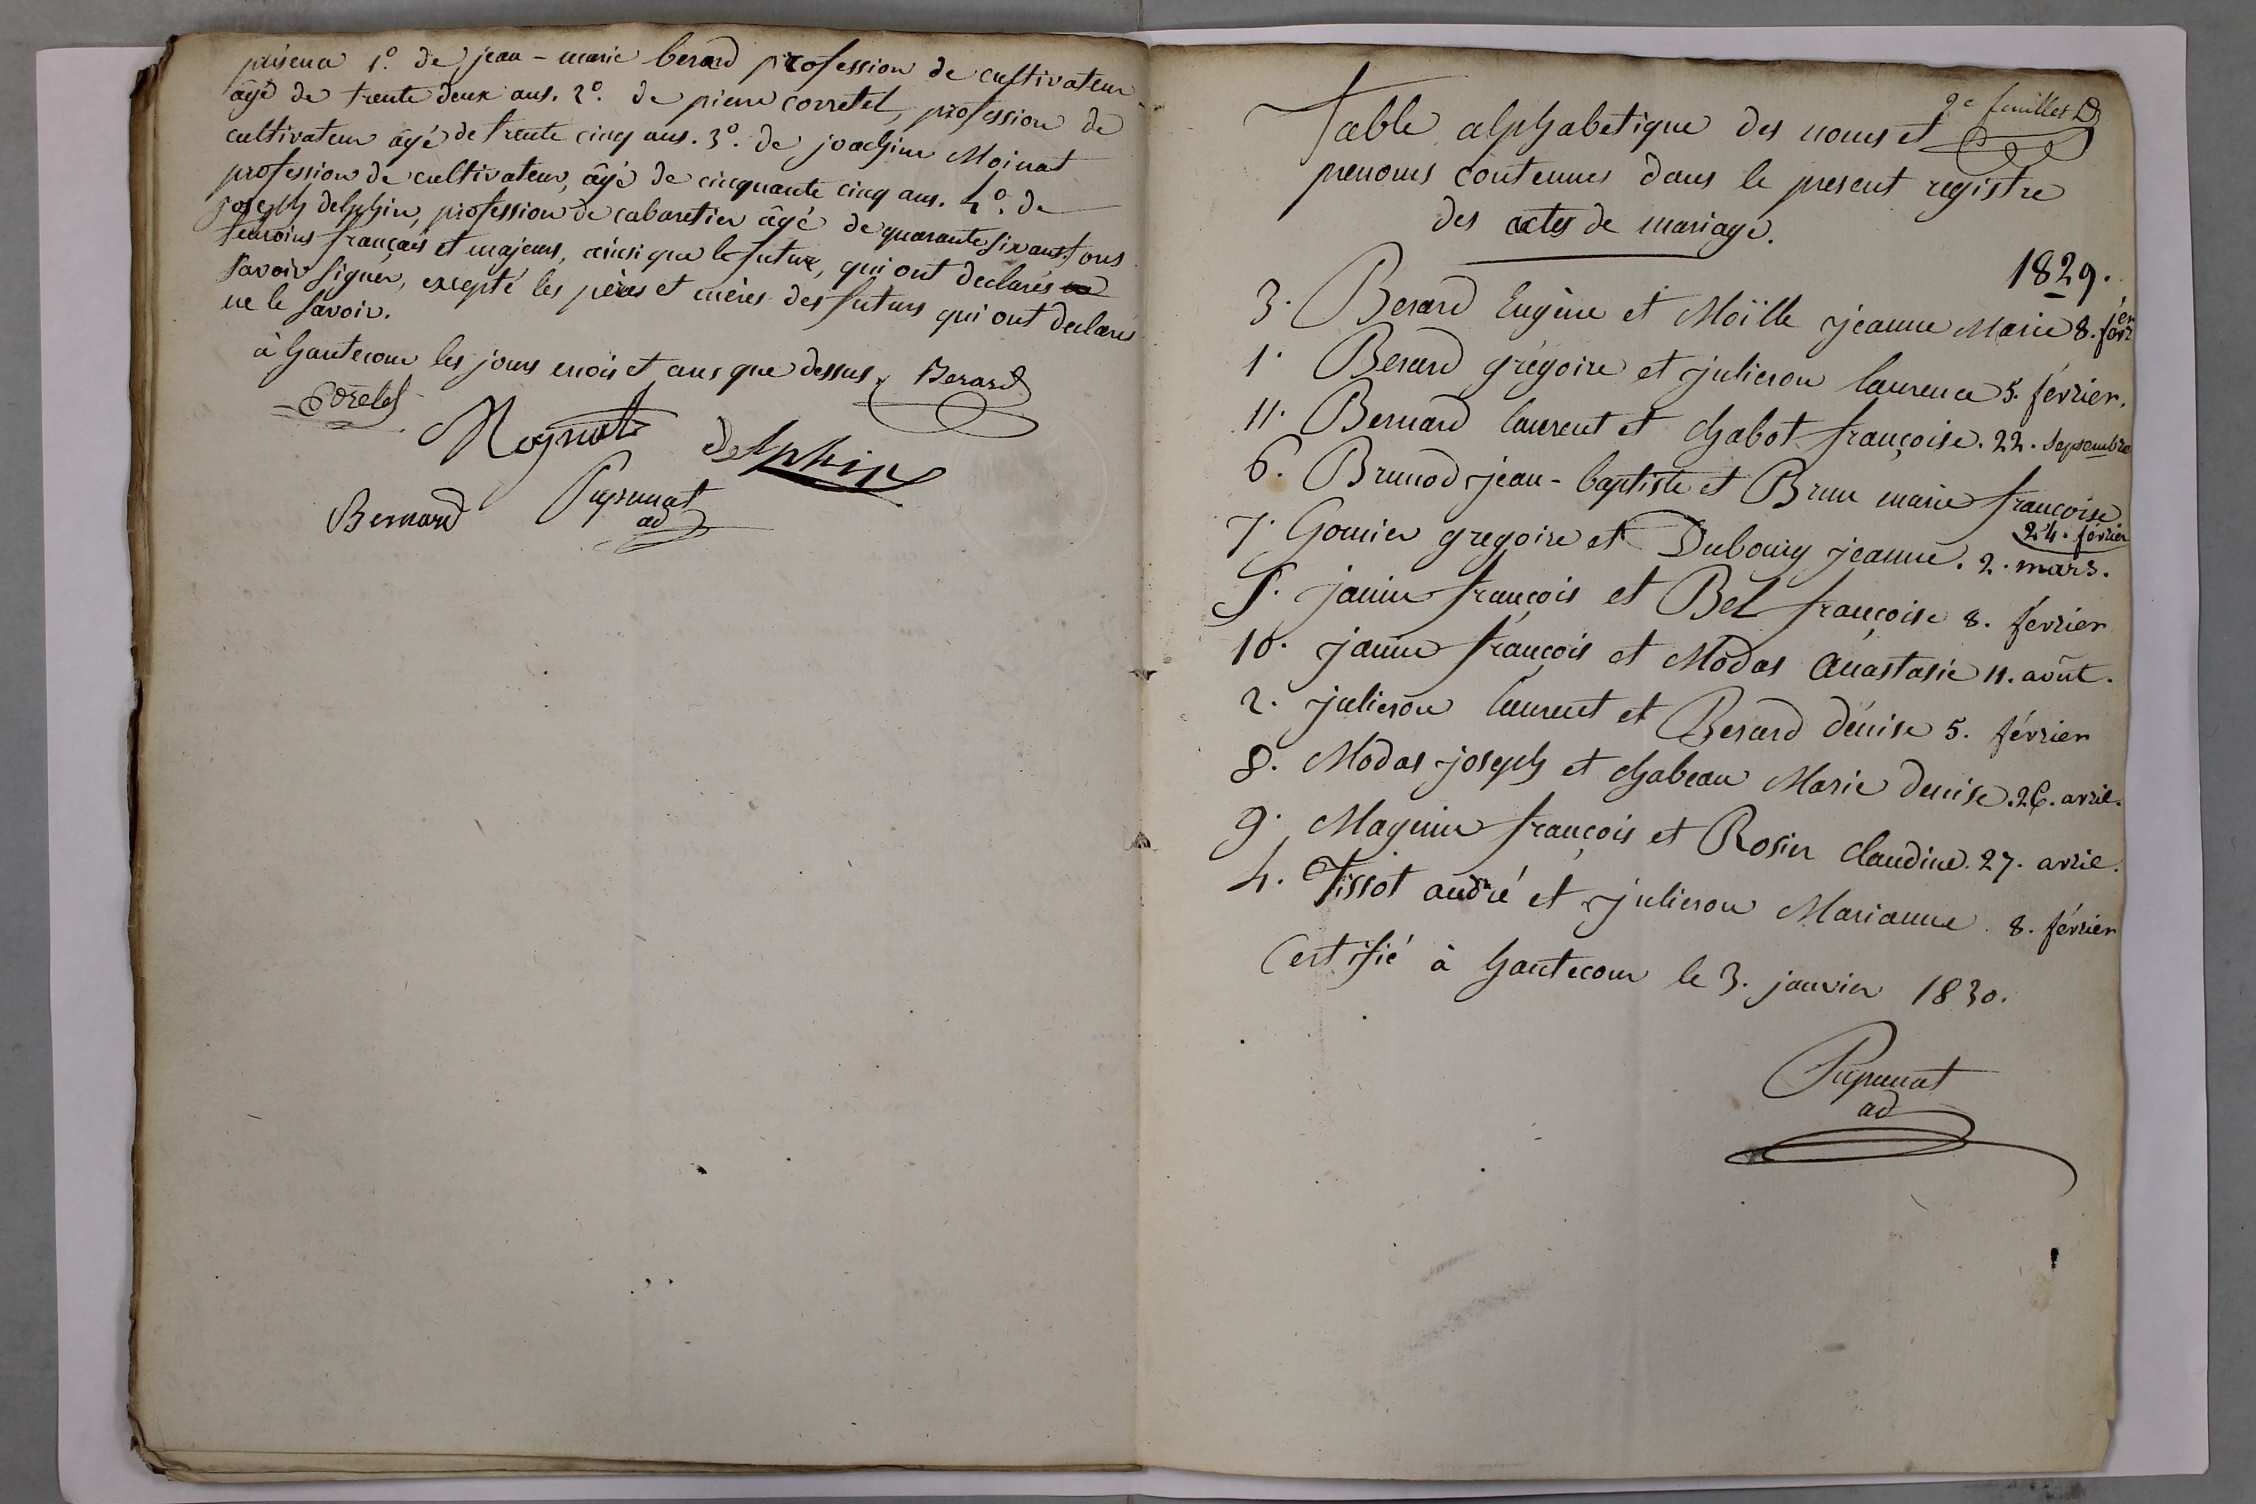 présence 1º. de jean-marie berard profession de cultivateur
âgé de trente deux ans. 2º. de pierre corretel, profession de
cultivateur âgé de trente cinq ans. 3º. de joachim Moinat
profession de cultivateur, âgé de cinquante cinq ans. 4º. de
joseph delphin, profession de cabaretier âgé de quarante six ans, tous
temoins français et majeurs, ainsi que le futur, qui ont declarés
savoir signer, excepté les pères et mères des futurs qui ont declarés
ne le savoir.
à hautecour les jours mois et ans que dessus. Berard
Corretel
Moynat delphin
Bernard Pupunat
ad
2e feuillet D
Table alphabetique des noms et
prenoms contenues dans le present registre
des actes de mariage.
1829.
3. Berard Eugène et Moïlle jeanne Marie 8. févrer
1. Berard grégoire et julieron laurence 5. février.
11. Bernard laurent et chabot françoise. 22. Septembre
6. Brunod jean-baptiste et Brun marie françoise
24. février
7. Gomier gregoire et Dubourg jeanne. 2. mars.
5. janin françois et Bel françoise 8. février
10. janin françois et Modas Anastasie 11. août.
2. julieron laurent et Berard dénise 5. février
8. Modas joseph et chabeau Marie denise. 26. avril.
9. Magnin françois et Rosier claudine. 27. avril.
4. Tissot andré et julieron Marianne 8. février
Certifié à hautecour le 3. janvier 1830.
Pupunat
ad